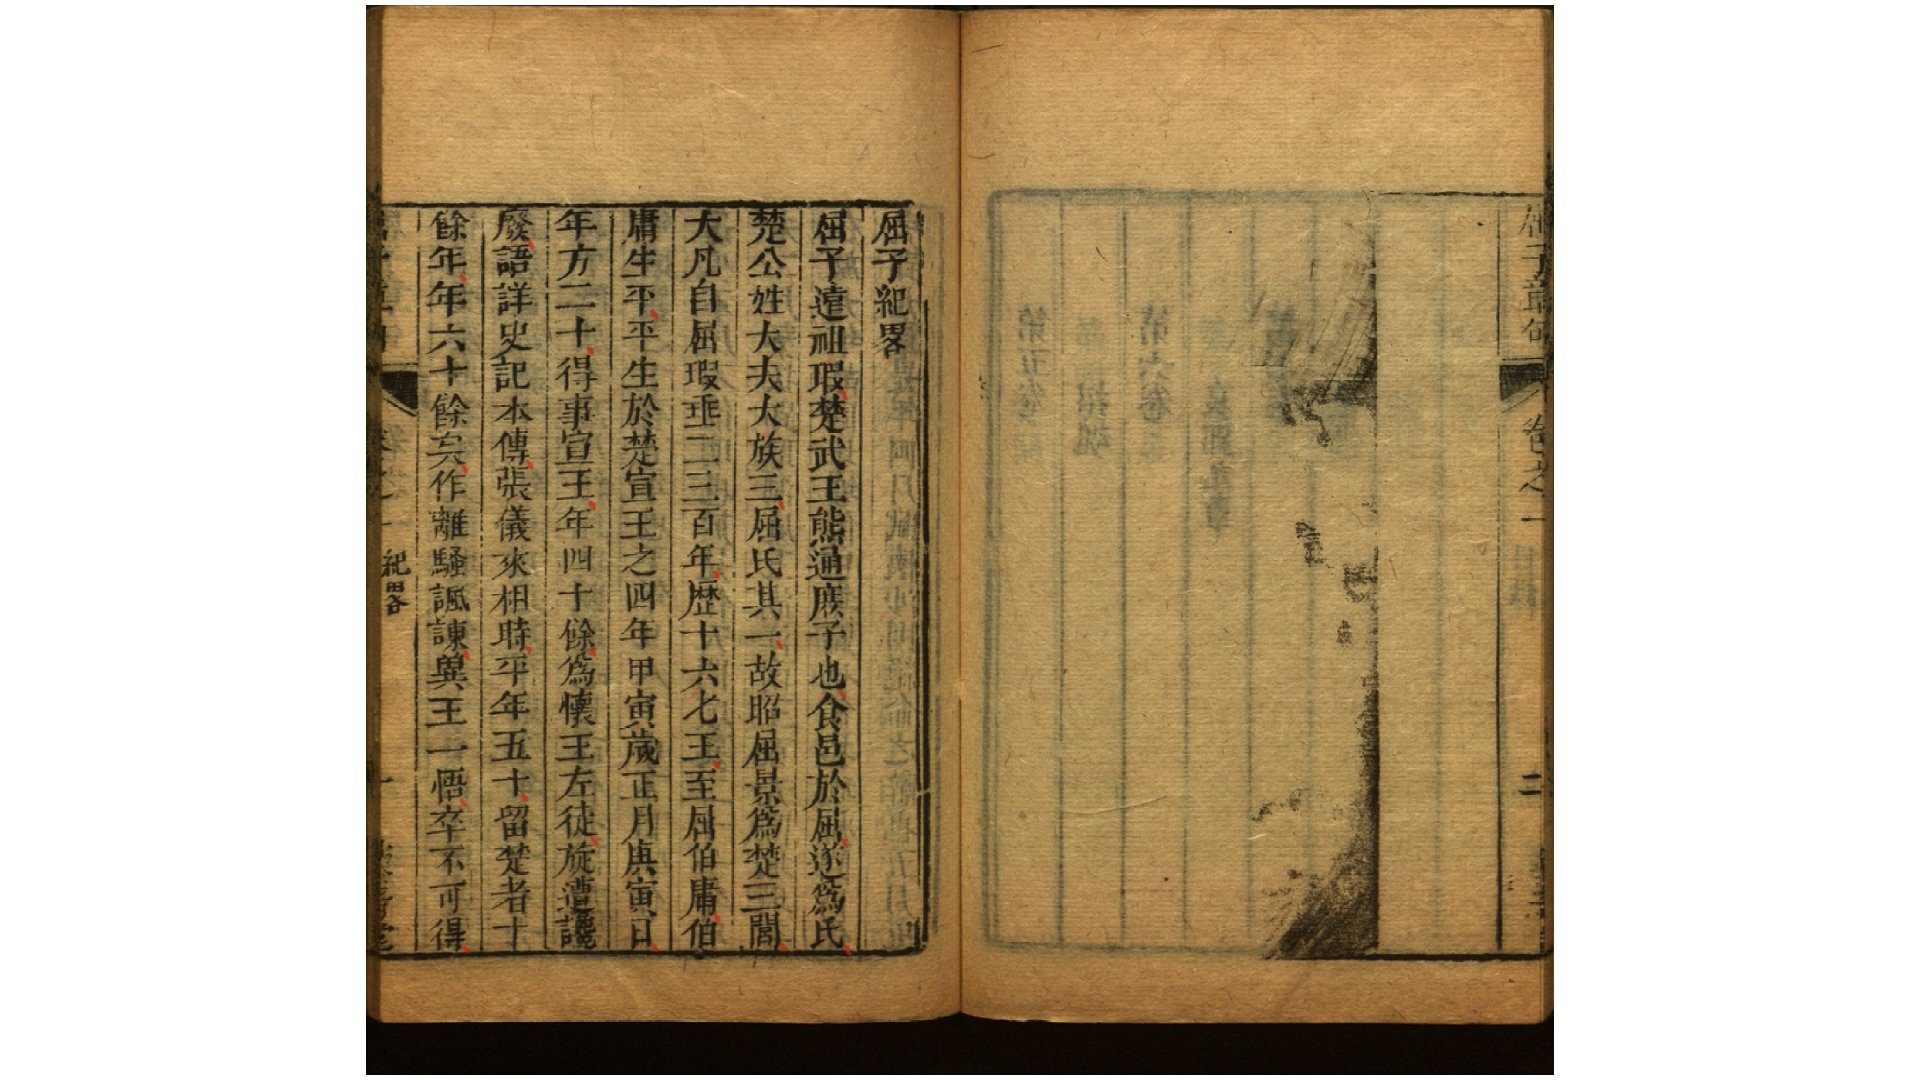 屈子章句
卷之一
二
屈子紀畧
屈子遠祖瑕楚武王熊通庶子也食邑於屈遂爲氏
楚公姓大夫大族三屈氏其一故昭屈景爲楚三閭
大凡自屈瑕至二三百年歷十六七王至屈伯庸伯
庸生平平生於楚宣王之四年甲寅歲正月庚寅日
年方二十得事宣王年四十餘爲懷王左徒旋遭讒
廢語詳史記本傳張儀來相時平年五十留楚者十
餘年年六十餘矣作離騷諷諫兾王一悟卒不可得
紀畧